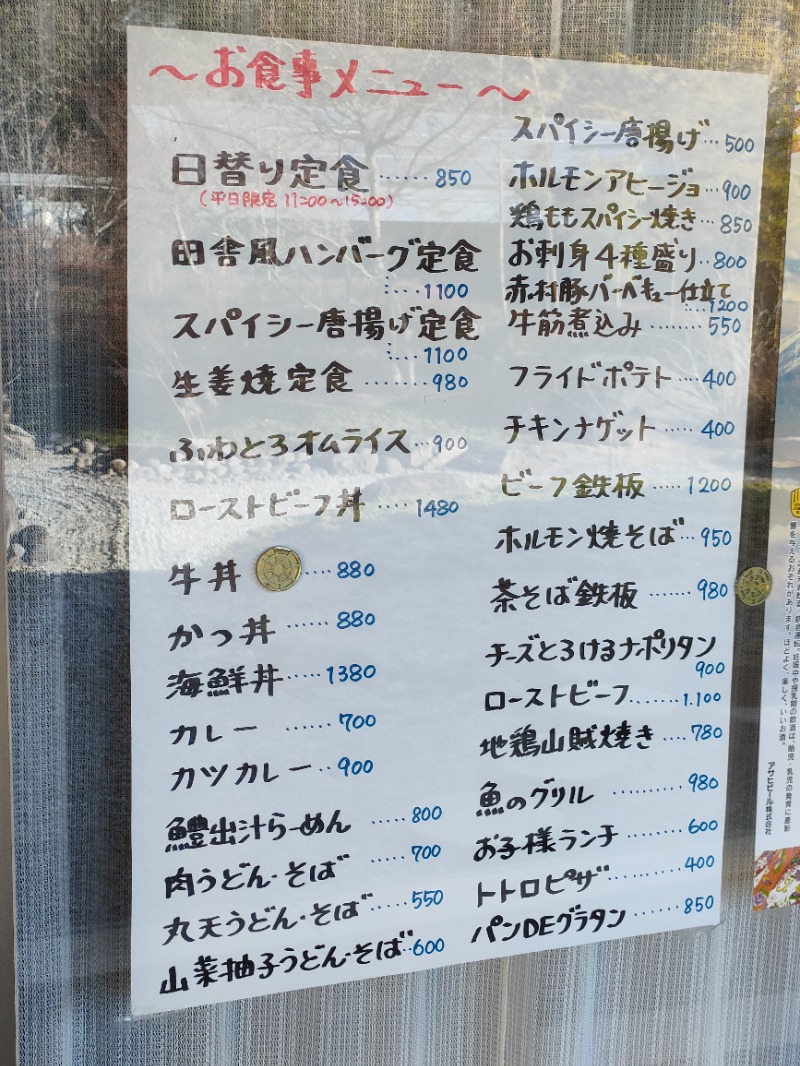 ～お食事メニュー～
日替り定食……850
(平日限定 11:00～15:00)
田舎風ハンバーグ定食
……1100
スパイシー唐揚げ定食
……1100
生姜焼定食……980
ふわとろオムライス…900
ローストビーフ丼……1480
牛丼……880
かつ丼……880
海鮮丼……1380
カレー……700
カツカレー…900
鱧出汁らーめん……800
肉うどん・そば……700
丸天うどん・そば……550
山菜柚子うどん・そば…600
スパイシー唐揚げ…500
ホルモンアヒージョ…900
鶏ももスパイシー焼き…850
お刺身4種盛り…800
赤村豚バーベキュー仕立て
…1200
牛筋煮込み……550
フライドポテト…400
チキンナゲット……400
ビーフ鉄板……1200
ホルモン焼そば…950
茶そば鉄板……980
チーズとろけるナポリタン
900
ローストビーフ……1.100
地鶏山賊焼き…780
魚のグリル……980
お子様ランチ……600
トトロピザ……400
パンDEグラタン……850
アサヒビール株式会社